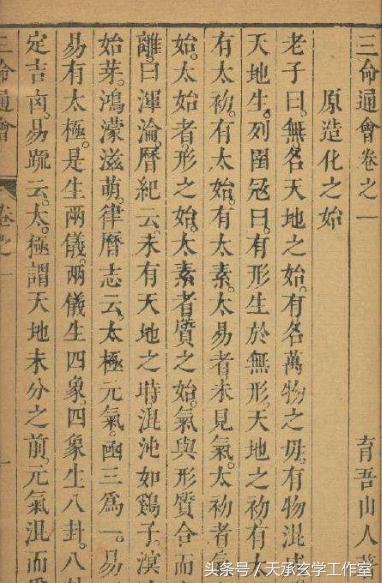 三命通會卷之一
育吾山人著
原造化之始
老子曰。無名天地之始。有名萬物之母。有物混成
天地生。列圄冦曰。有形生於無形。天地之初有太
有太初。有太始。有太素。太易者未見氣。太初者
始。太始者形之始。太素者質之始。氣與形質合而
離。曰渾淪。曆紀云。未有天地之時混沌如鷄子。溟
始芽。鴻濛滋萌。律曆志云。太極元氣函三爲一。易
易有太極。是生兩儀。兩儀生四象。四象生八卦。八卦
定吉凶。易䟽云。太極謂天地未分之前。元氣混而爲
三命通會
卷之一
一
头条号／天承玄学工作室